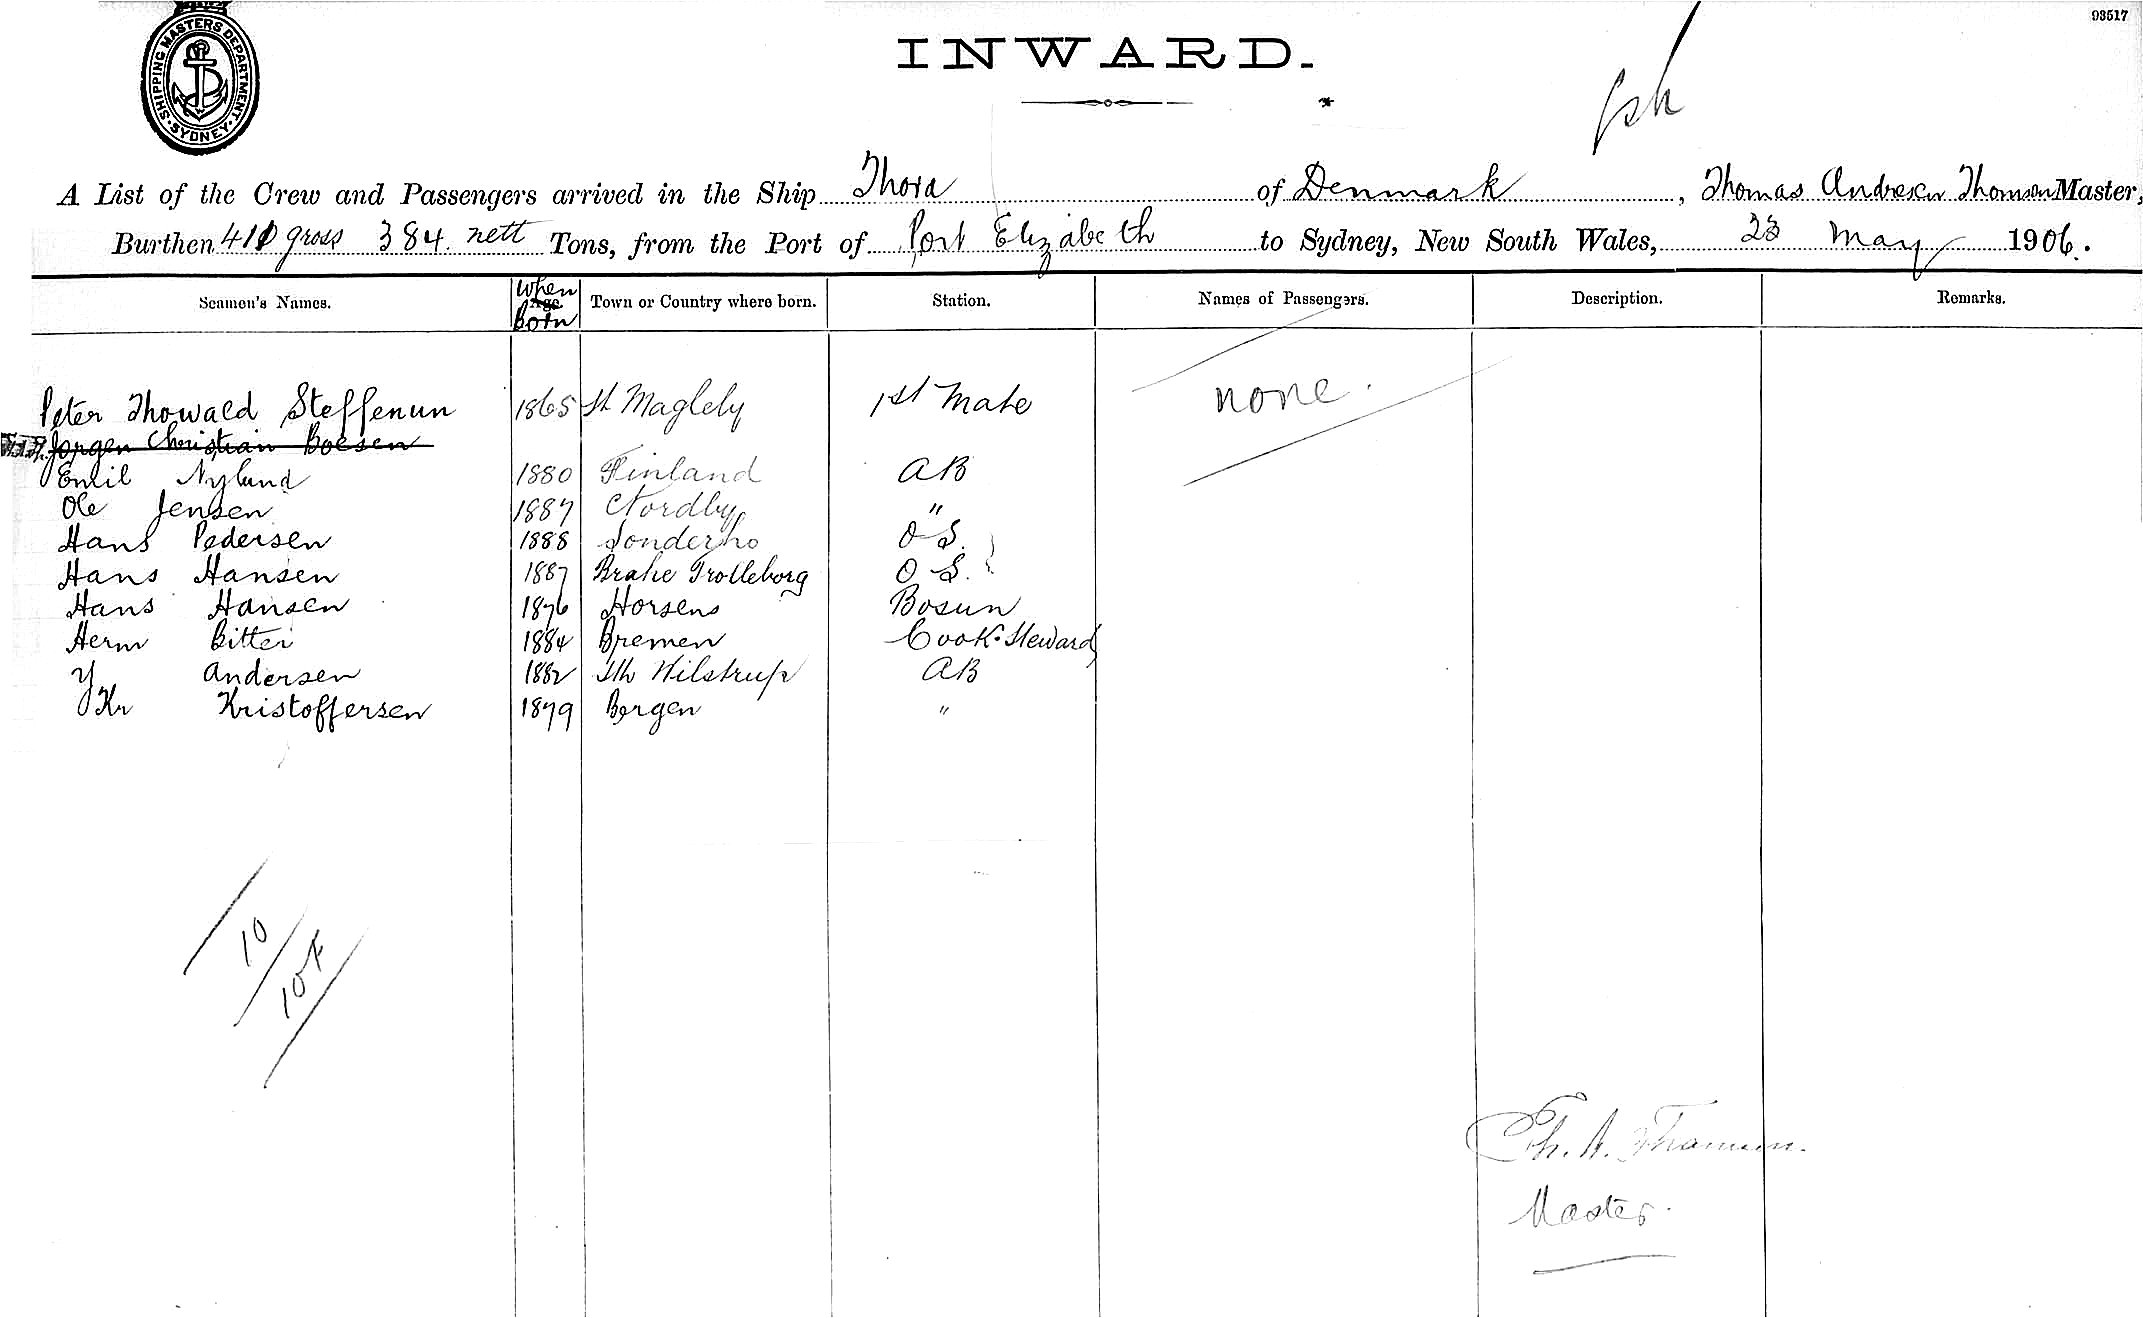 93517
SHIPPING MASTERS DEPARTMENT. SYDNEY.
INWARD.
A List of the Crew and Passengers arrived in the Ship Thora of Denmark, Thomas Andresen Thomsen Master,
Burthen 411 gross 384 nett Tons, from the Port of Port Elizabeth to Sydney, New South Wales, 23 May 1906.
Seamen's Names. When Born Town or Country where born. Station. Names of Passengers. Description. Remarks.
Peter Thowald Steffenun 1865 St Magleby 1st Mate none.
Jorgen Christian Boesen
Emil Nylund 1880 Finland AB
Ole Jensen 1887 Nordby "
Hans Pedersen 1888 Sonderho OS.
Hans Hansen 1887 Brahe Trolleborg OS.
Hans Hansen 1876 Horsens Bosun
Herm Bitter 1884 Bremen Cook. Steward
Y Andersen 1882 Sth Wilstrup AB
Kr Kristoffersen 1879 Bergen "
10
10 F
Th. A. Thomsen.
Master.